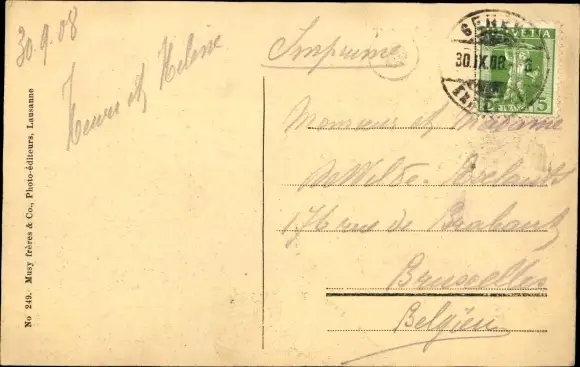 30.9.08
Henri et Helene
No 249. Musy frères & Co., Photo-éditeurs, Lausanne
Imprimé
GENÈV
30.IX.08
HELVETIA
5
Monsieur et Madame
DeWilde
rue de Brabant
Bruxelles
Belgien